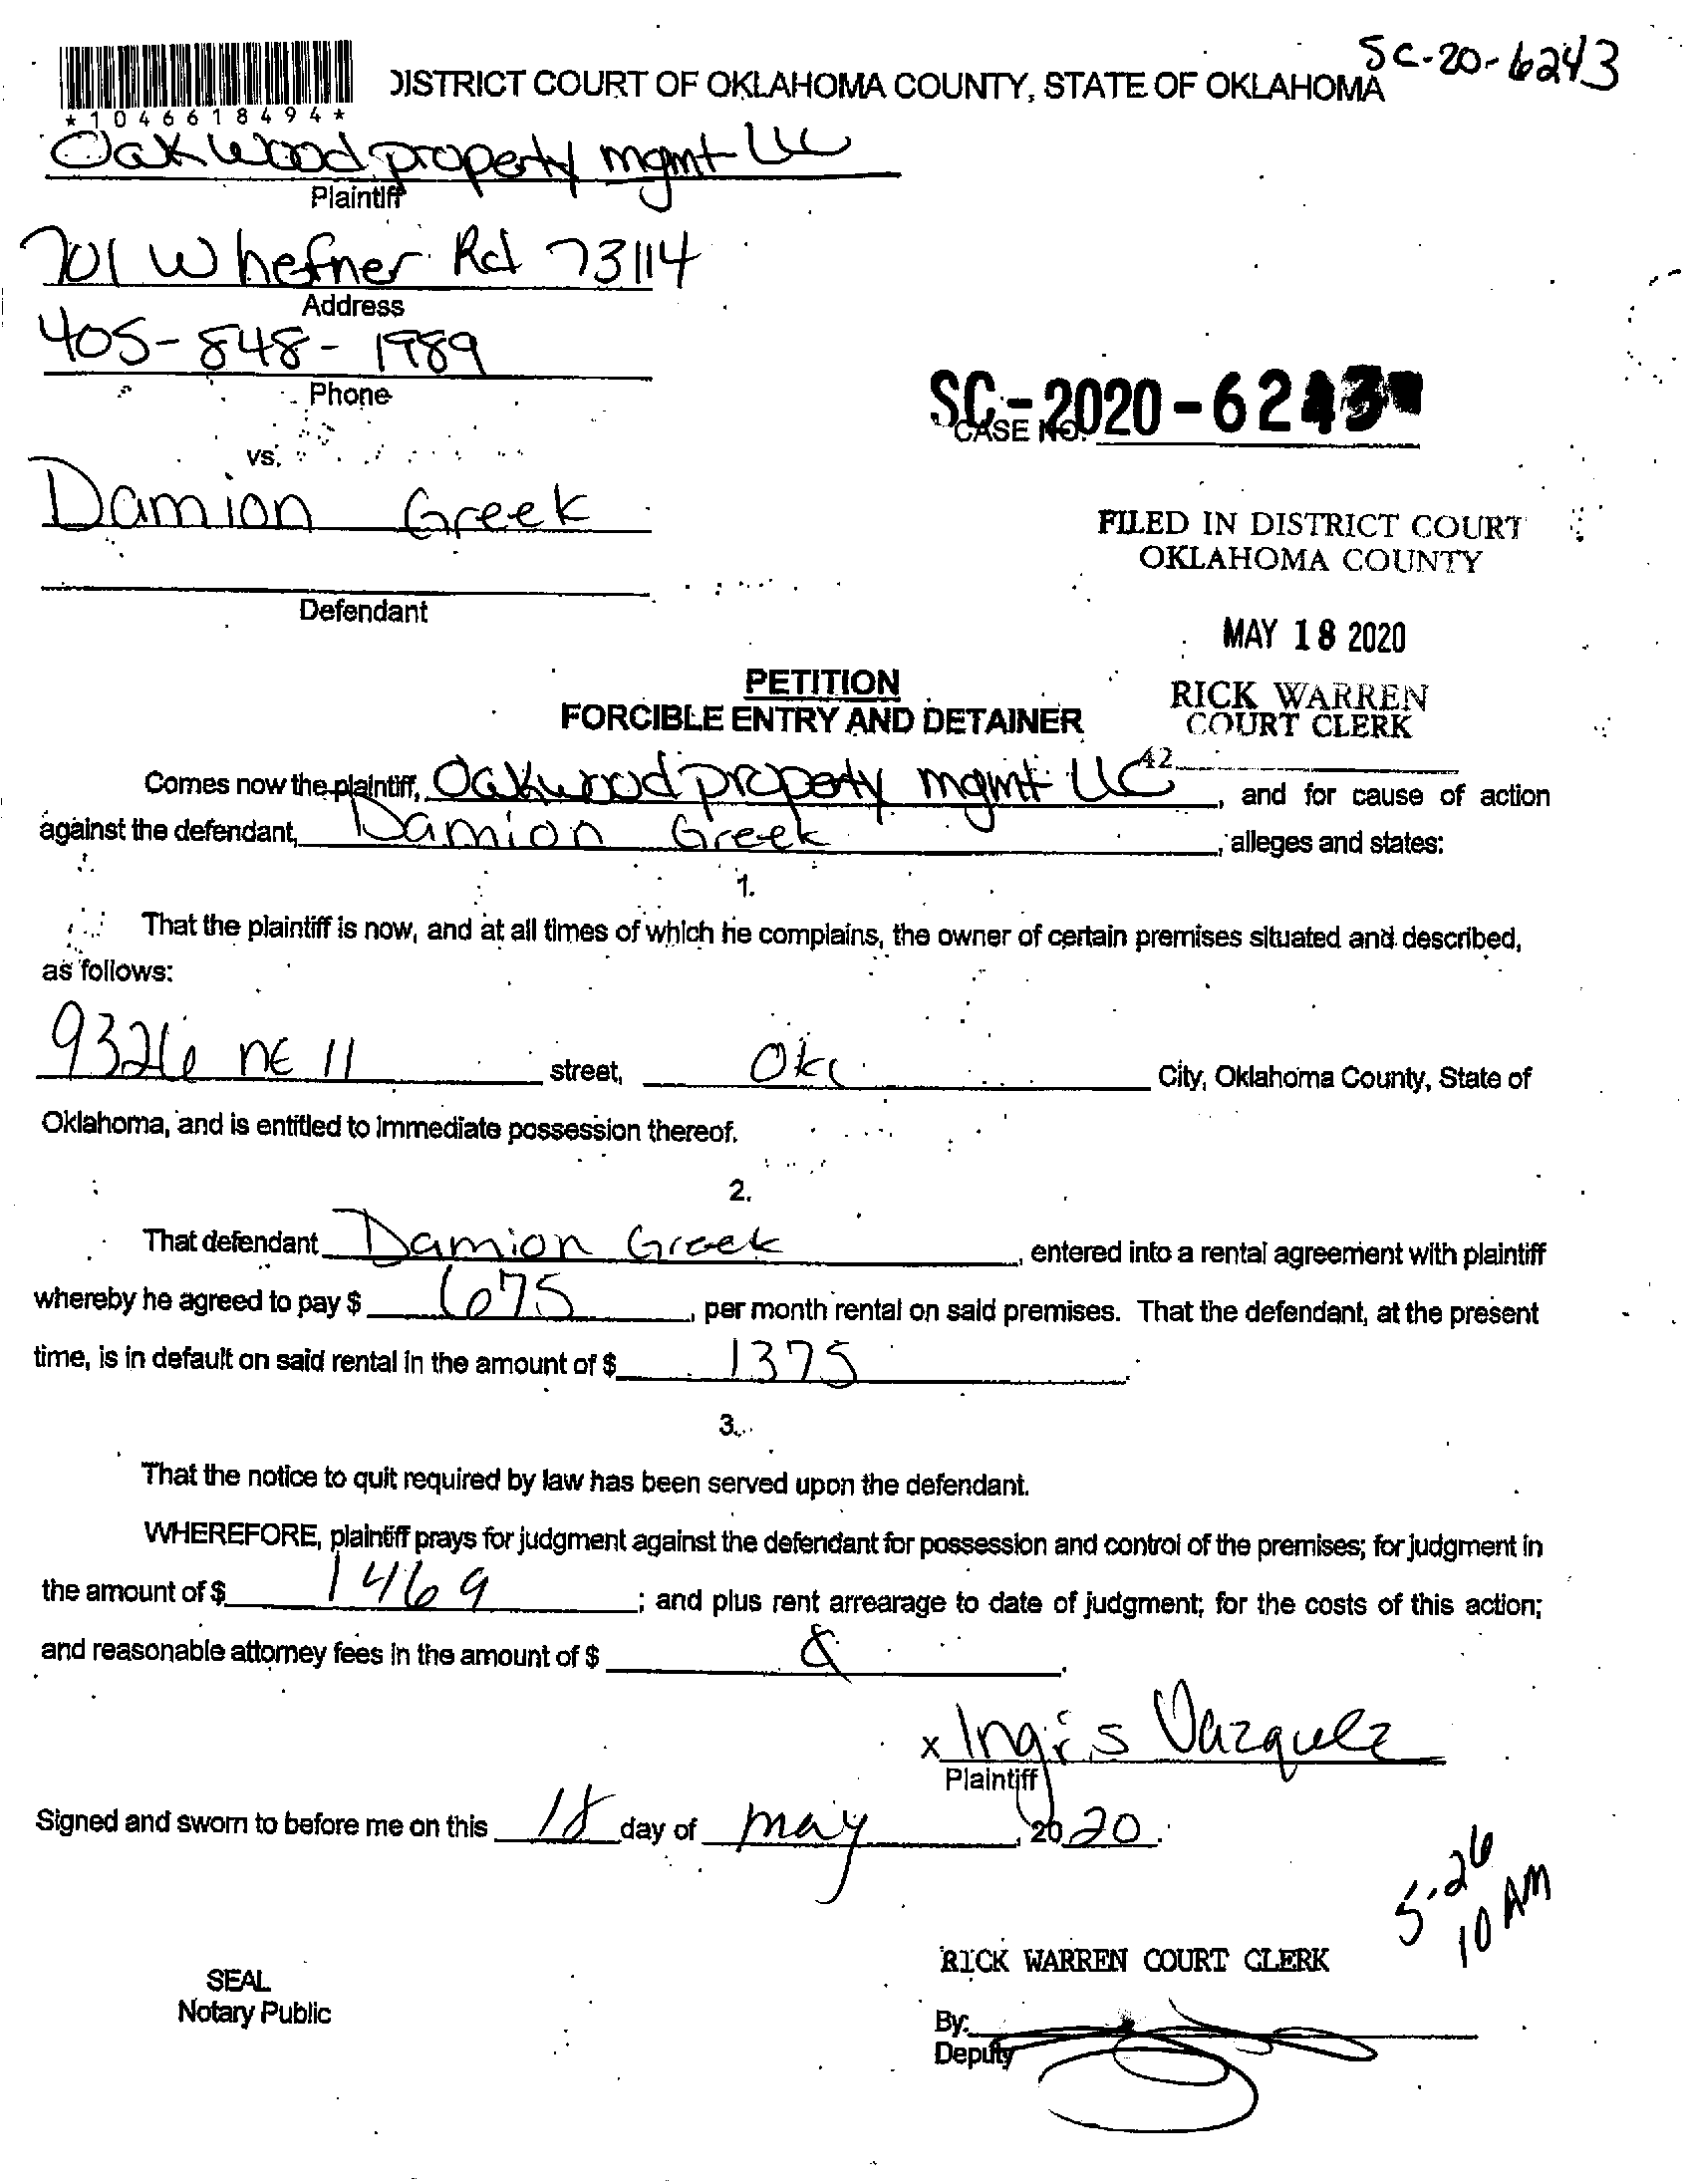 SC-20-6243
DISTRICT COURT OF OKLAHOMA COUNTY, STATE OF OKLAHOMA
*1046618494*
Oakwood property mgmt LLC
Plaintiff
701 W hefner Rd 73114
Address
405-848-1989
Phone
SC-2020-6243
CASE NO.
vs.
Damion Greek
FILED IN DISTRICT COURT
OKLAHOMA COUNTY
Defendant
MAY 18 2020
PETITION
RICK WARREN
FORCIBLE ENTRY AND DETAINER
COURT CLERK
42
Comes now the plaintiff, Oakwood property mgmt LLC, and for cause of action
against the defendant, Damion Greek, alleges and states:
1.
That the plaintiff is now, and at all times of which he complains, the owner of certain premises situated and described,
as follows:
9326 NE 11 street, Okc City, Oklahoma County, State of
Oklahoma, and is entitled to immediate possession thereof.
2.
That defendant Damion Greek, entered into a rental agreement with plaintiff
whereby he agreed to pay $ 675, per month rental on said premises. That the defendant, at the present
time, is in default on said rental in the amount of $ 1375.
3.
That the notice to quit required by law has been served upon the defendant.
WHEREFORE, plaintiff prays for judgment against the defendant for possession and control of the premises; for judgment in
the amount of $ 1469; and plus rent arrearage to date of judgment; for the costs of this action;
and reasonable attorney fees in the amount of $
x Ingris Vazquez
Plaintiff
Signed and sworn to before me on this 18 day of may, 2020.
5-26
10 AM
RICK WARREN COURT CLERK
SEAL
Notary Public
By:
Deputy